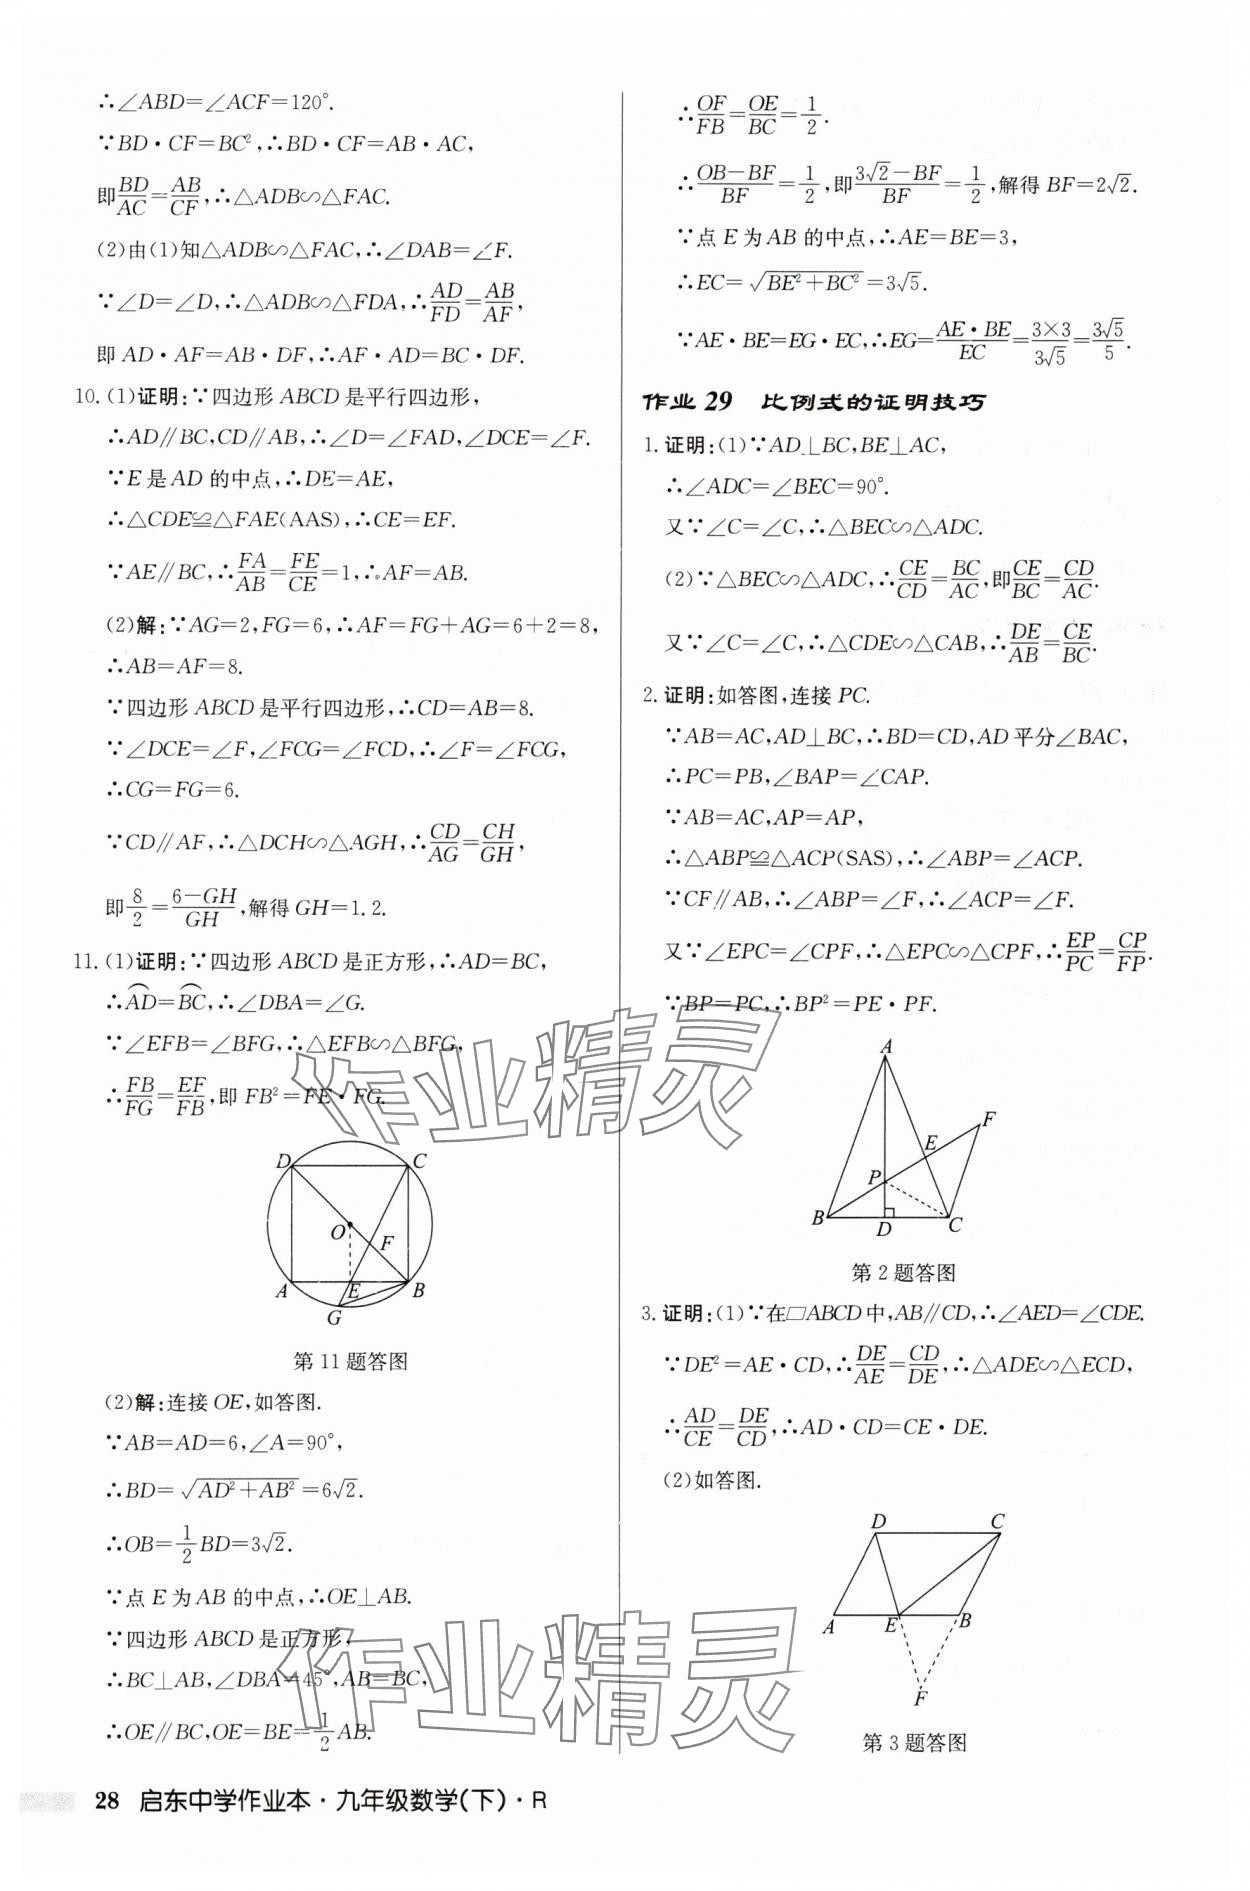 ∴∠ABD=∠ACF=120°.
∵BD·CF=BC²,∴BD·CF=AB·AC,
即BD/AC=AB/CF,∴△ADB∽△FAC.
(2)由(1)知△ADB∽△FAC,∴∠DAB=∠F.
∵∠D=∠D,∴△ADB∽△FDA,∴AD/FD=AB/AF,
即 AD·AF=AB·DF,∴AF·AD=BC·DF.
10. (1)证明:∵四边形 ABCD 是平行四边形,
∴AD∥BC,CD∥AB,∴∠D=∠FAD,∠DCE=∠F.
∵E 是 AD 的中点,∴DE=AE,
∴△CDE≌△FAE(AAS),∴CE=EF.
∵AE∥BC,∴FA/AB=FE/CE=1,∴AF=AB.
(2)解:∵AG=2,FG=6,∴AF=FG+AG=6+2=8,
∴AB=AF=8.
∵四边形 ABCD 是平行四边形,∴CD=AB=8.
∵∠DCE=∠F,∠FCG=∠FCD,∴∠F=∠FCG,
∴CG=FG=6.
∵CD∥AF,∴△DCH∽△AGH,∴CD/AG=CH/GH,
即8/2=(6-GH)/GH,解得 GH=1.2.
11. (1)证明:∵四边形 ABCD 是正方形,∴AD=BC,
∴⌒AD=⌒BC,∴∠DBA=∠G.
∵∠EFB=∠BFG,∴△EFB∽△BFG,
∴FB/FG=EF/FB,即 FB²=FE·FG.
D C
O
F
A E B
G
第 11 题答图
(2)解:连接 OE,如答图.
∵AB=AD=6,∠A=90°,
∴BD=√(AD²+AB²)=6√2.
∴OB=1/2 BD=3√2.
∵点 E 为 AB 的中点,∴OE⊥AB.
∵四边形 ABCD 是正方形,
∴BC⊥AB,∠DBA=45°,AB=BC,
∴OE∥BC,OE=BE=1/2 AB.
∴OF/FB=OE/BC=1/2.
∴(OB-BF)/BF=1/2,即(3√2-BF)/BF=1/2,解得 BF=2√2.
∵点 E 为 AB 的中点,∴AE=BE=3,
∴EC=√(BE²+BC²)=3√5.
∵AE·BE=EG·EC,∴EG=AE·BE/EC=3×3/3√5=3√5/5.
作业 29 比例式的证明技巧
1. 证明:(1)∵AD⊥BC,BE⊥AC,
∴∠ADC=∠BEC=90°.
又∵∠C=∠C,∴△BEC∽△ADC.
(2)∵△BEC∽△ADC,∴CE/CD=BC/AC,即CE/BC=CD/AC.
又∵∠C=∠C,∴△CDE∽△CAB,∴DE/AB=CE/BC.
2. 证明:如答图,连接 PC.
∵AB=AC,AD⊥BC,∴BD=CD,AD 平分∠BAC,
∴PC=PB,∠BAP=∠CAP.
∵AB=AC,AP=AP,
∴△ABP≌△ACP(SAS),∴∠ABP=∠ACP.
∵CF∥AB,∴∠ABP=∠F,∴∠ACP=∠F.
又∵∠EPC=∠CPF,∴△EPC∽△CPF,∴EP/PC=CP/FP.
∵BP=PC,∴BP²=PE·PF.
A
F
E
P
B D C
第 2 题答图
3. 证明:(1)∵在▱ABCD 中,AB∥CD,∴∠AED=∠CDE.
∵DE²=AE·CD,∴DE/AE=CD/DE,∴△ADE∽△ECD,
∴AD/CE=DE/CD,∴AD·CD=CE·DE.
(2)如答图.
D C
A E B
F
第 3 题答图
28 启东中学作业本·九年级数学(下)·R
作业精灵
作业精灵